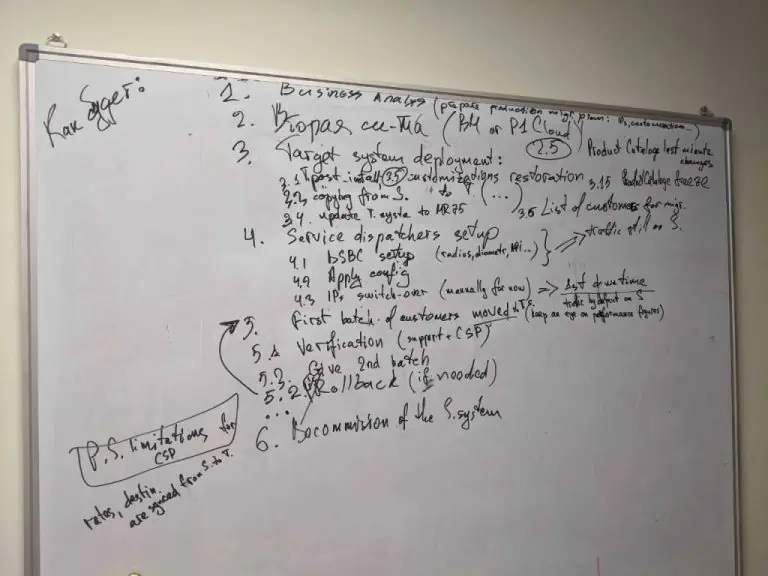 Как будет:
1. Business Analysis (prepare production migr. plan: customization...)
2. Вторая си-ма (BM or P1 Cloud)
2.5 Product Catalog last minute changes
3. Target system deployment:
3.1 post install, 3.5 customizations restoration
3.15 Product Catalog freeze
3.2 copying from S. to T. (...)
3.4. update T. system to MR75
3.6 List of customers for migr.
4. Service dispatchers setup
4.1 DSBC setup (radius, diametr, API...) => traffic still on S.
4.2 Apply config
4.3 IPs switch-over (manually for now) => 1st downtime
traffic by default on S
5. First batch of customers moved to T.S. (keep an eye on performance figures)
5.1 Verification (support + CSP)
5.3. Give 2nd batch
5.2. Rollback (if needed)
...
6. Decommission of the S. system
P.S. limitations for CSP
rates, destin. are synced from S. to T.